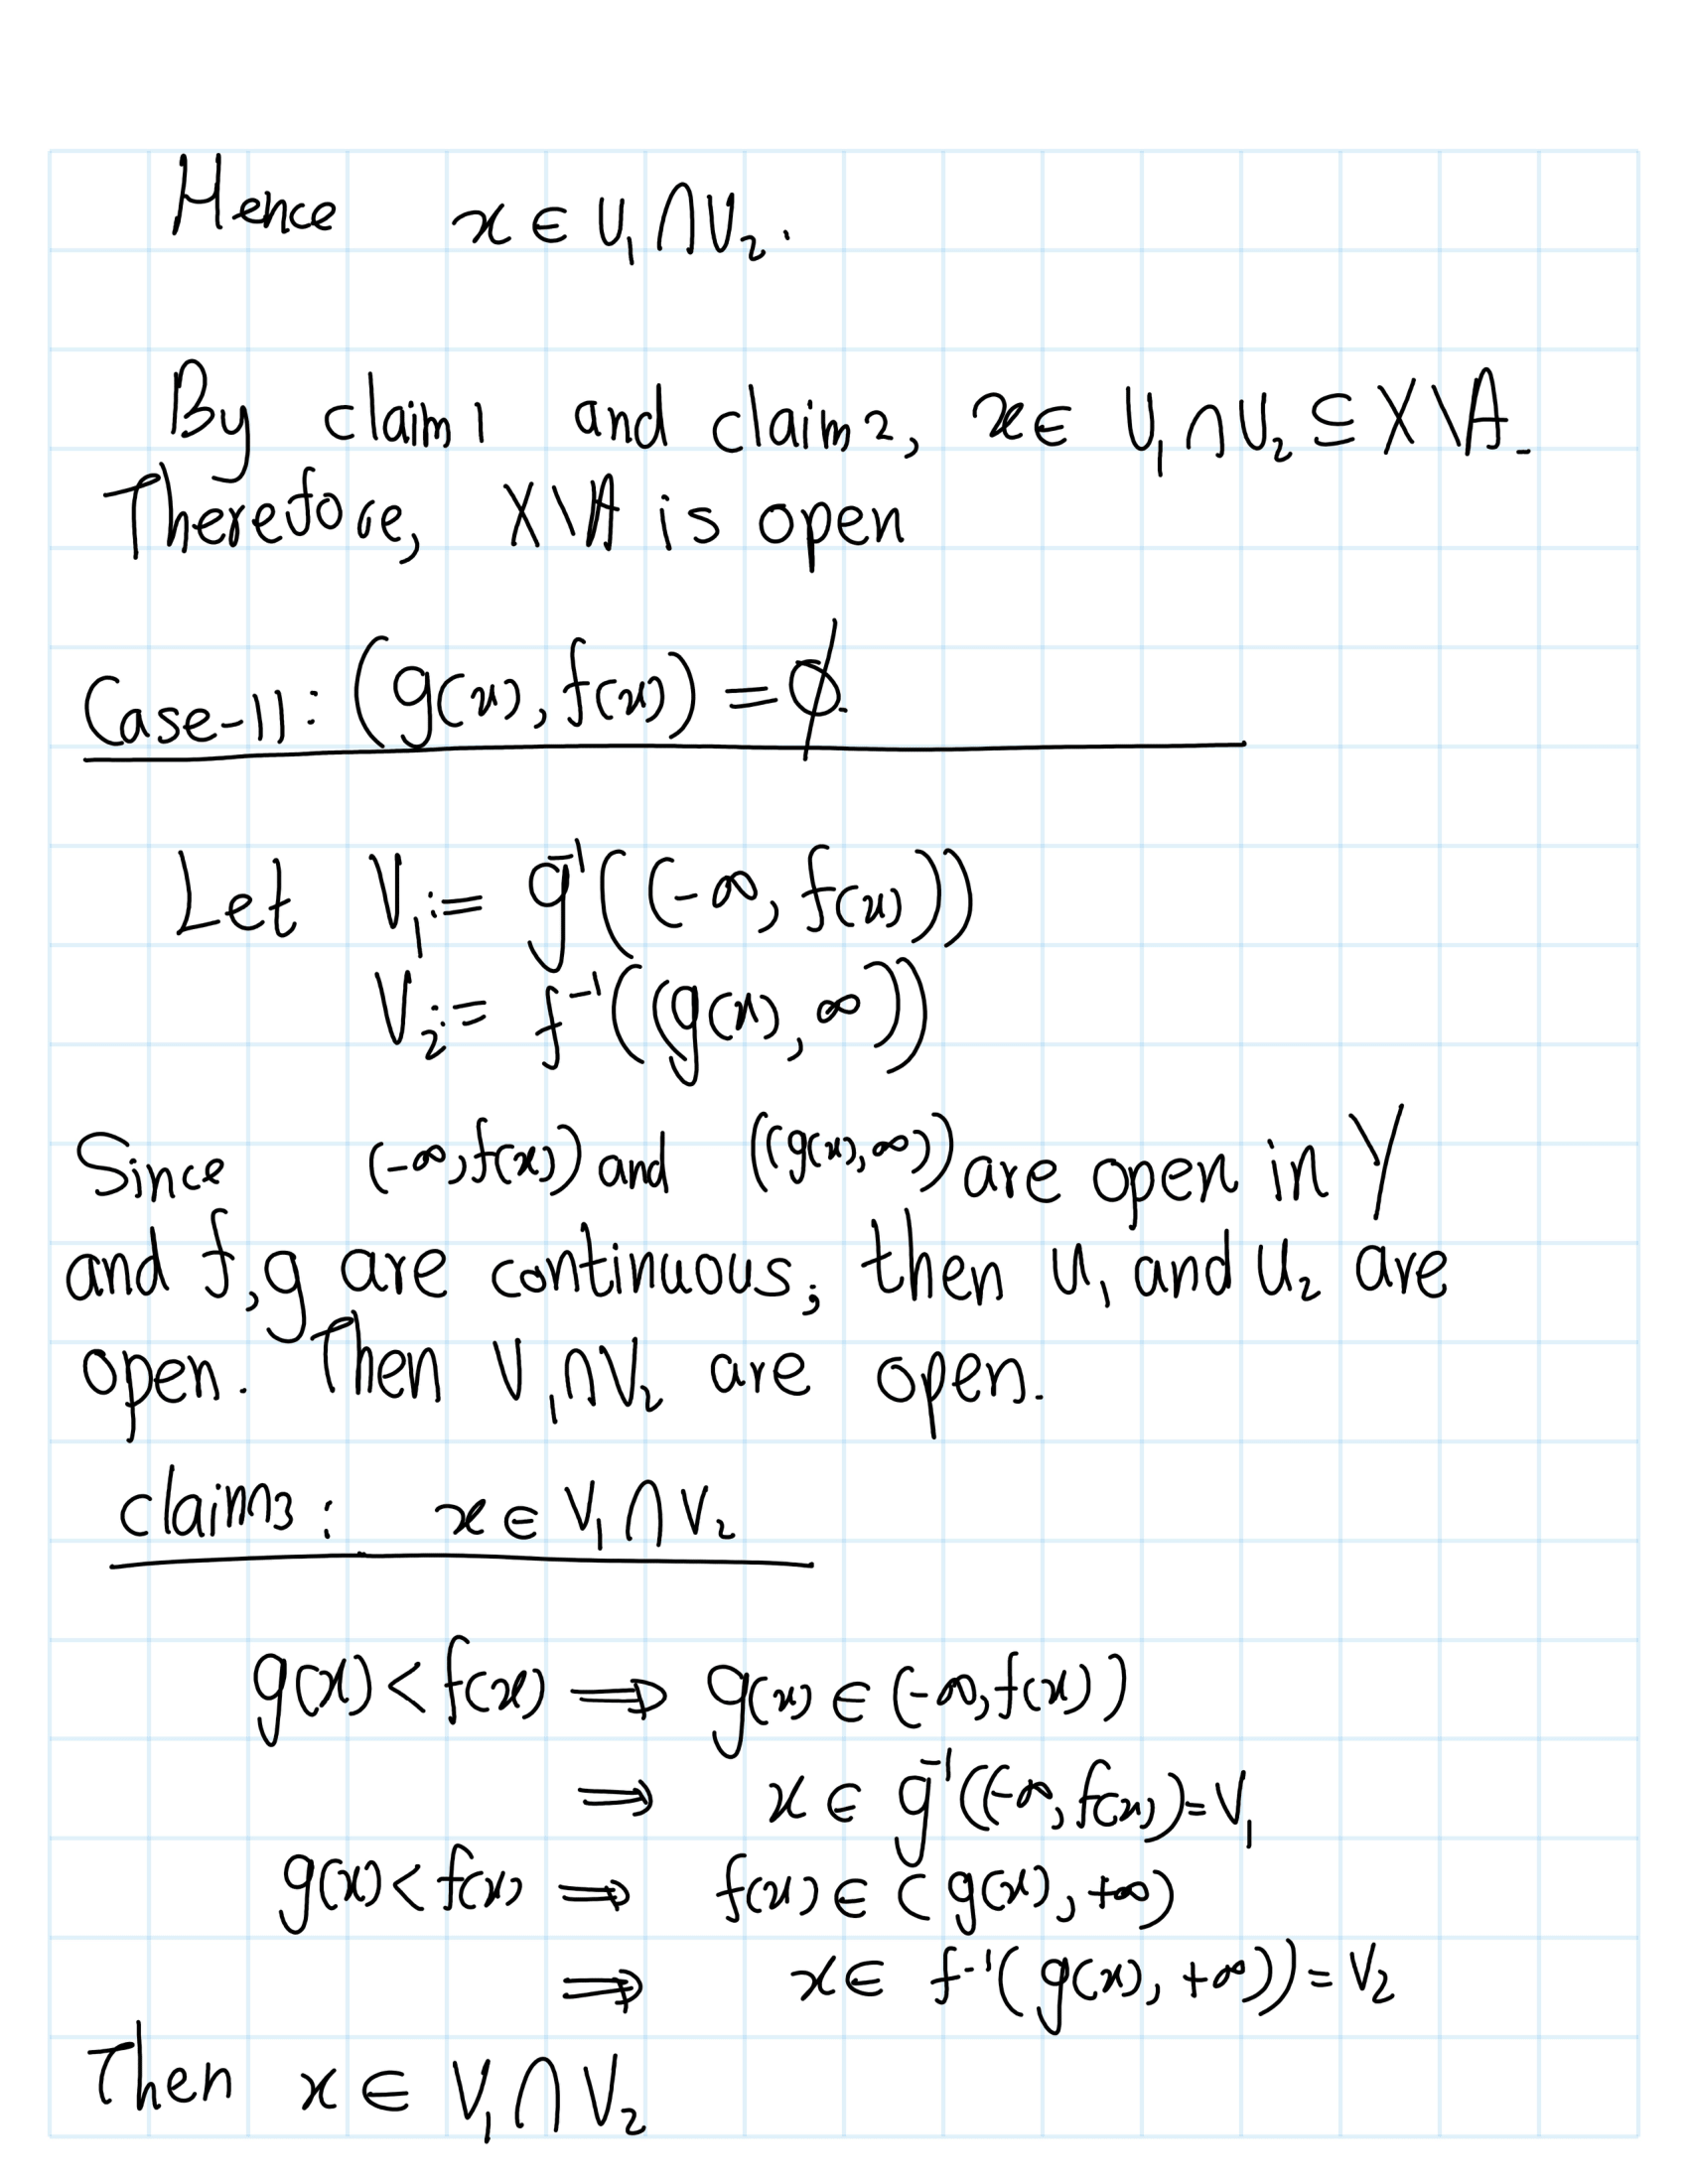 Hence x ∈ U₁ ⋂ U₂.
By claim1 and claim2, x ∈ U₁ ∩ U₂ ⊆ X \ A.
Therefore, X \ A is open
Case-II: (g(x), f(x)) = ϕ.
Let V₁ := g⁻¹((-∞, f(x)))
V₂ := f⁻¹((g(x), ∞))
Since (-∞, f(x)) and ((g(x), ∞)) are open in Y
and f, g are continuous; then U₁ and U₂ are
open. Then V₁ ∩ V₂ are open.
claim3: x ∈ V₁ ⋂ V₂
g(x) < f(x) ⟹ g(x) ∈ (-∞, f(x))
⟹ x ∈ g⁻¹((-∞, f(x)) = V₁
g(x) < f(x) ⟹ f(x) ∈ (g(x), +∞)
⟹ x ∈ f⁻¹(g(x), +∞)) = V₂
Then x ∈ V₁ ⋂ V₂